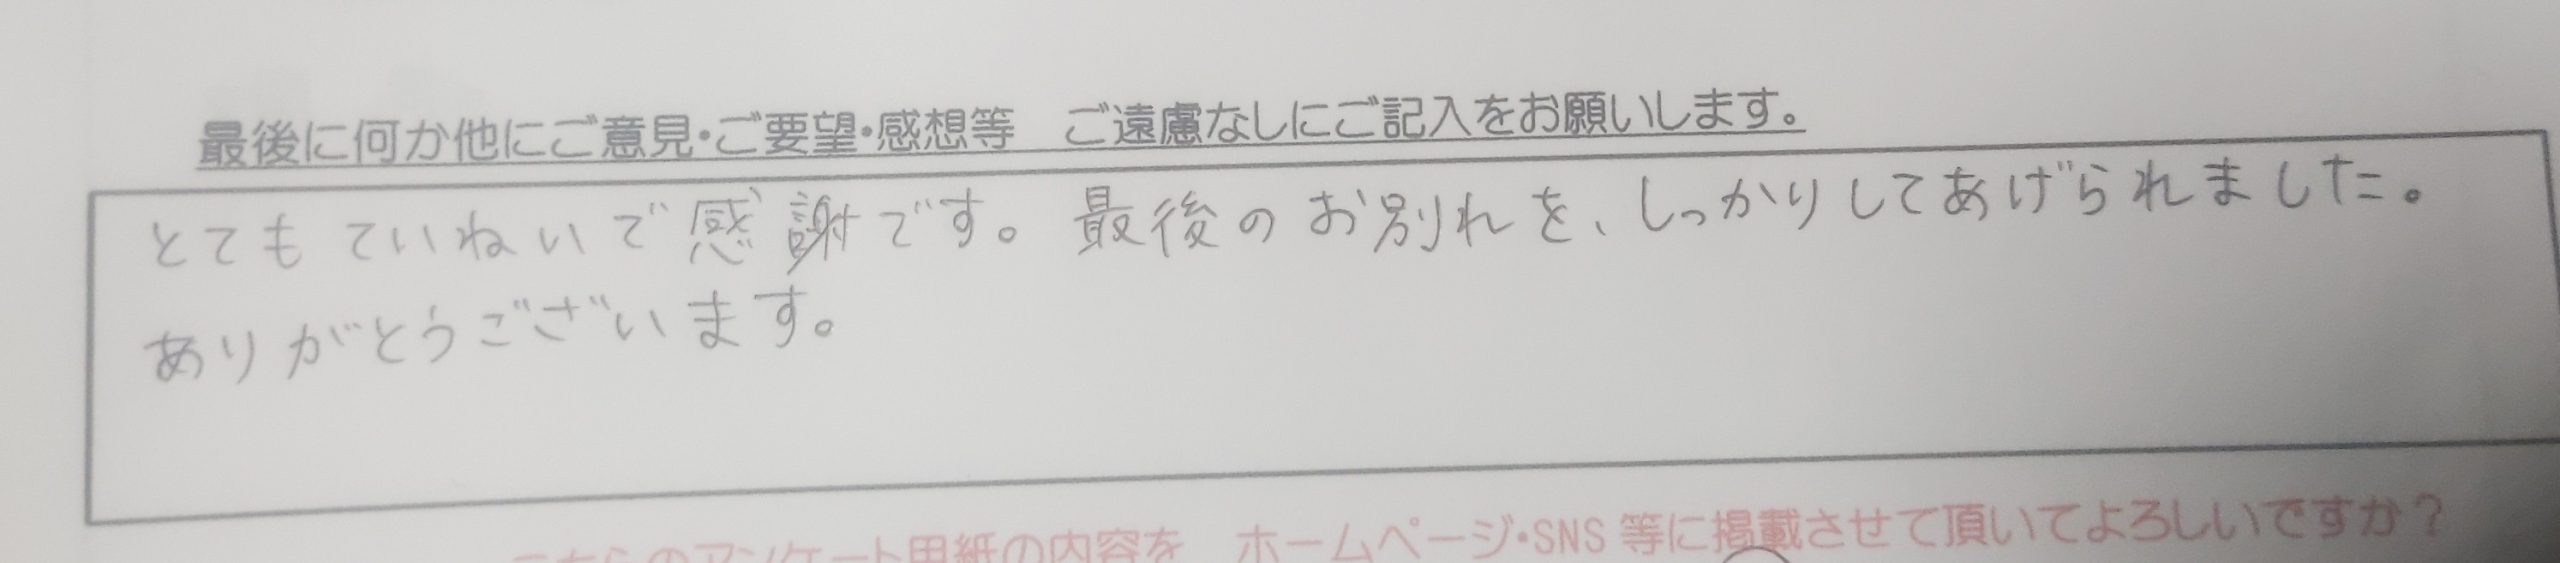 最後に何か他にご意見・ご要望・感想等　ご遠慮なしにご記入をお願いします。
とてもていねいで感謝です。最後のお別れを、しっかりしてあげられました。
ありがとうございます。
こちらのアンケート用紙の内容を　ホームページ・SNS等に掲載させて頂いてよろしいですか？